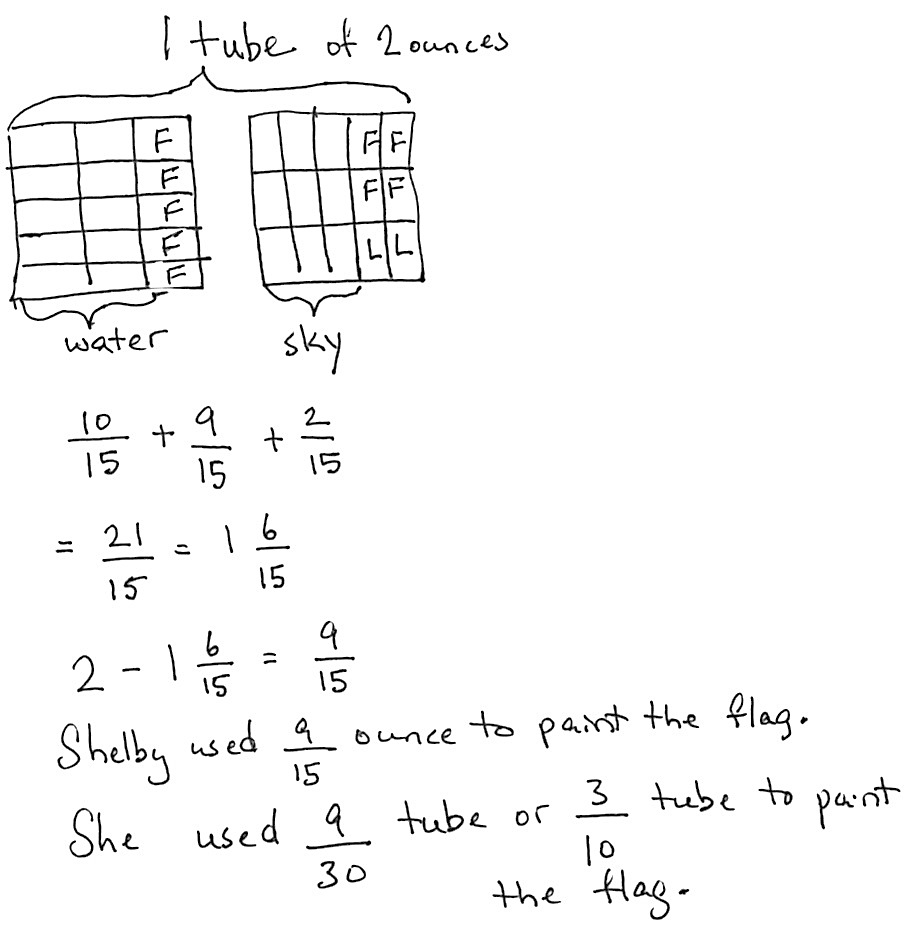 1 tube of 2 ounces
F F F
F F F
F
F L L
F
water sky
10/15 + 9/15 + 2/15
= 21/15 = 1 6/15
2 - 1 6/15 = 9/15
Shelby used 9/15 ounce to paint the flag.
She used 9/30 tube or 3/10 tube to paint
the flag.